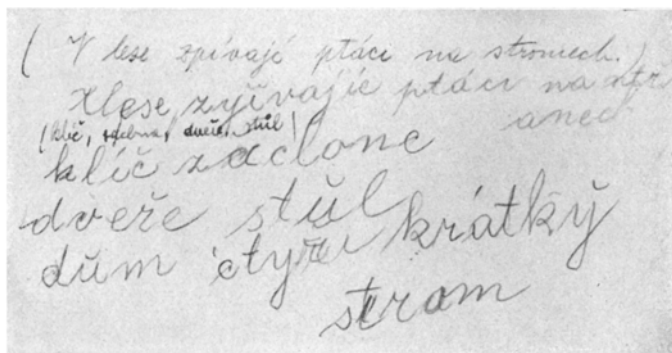 ( V lese zpívají ptáci na stromech. )
Xlese zyřívajíc ptáci na str
anech
(klíč, záclona, dveře, stůl)
klíč zaclone
dveře stůl
dům čtyři krátký
strom